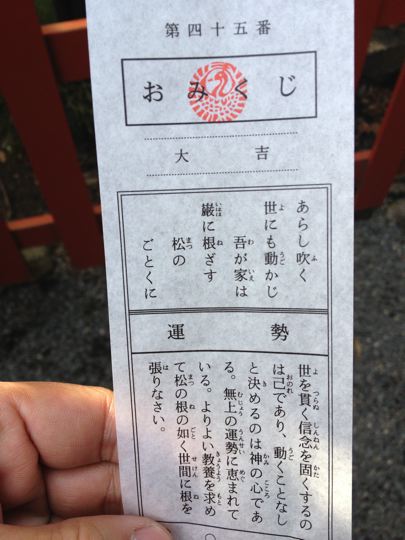 第四十五番
おみくじ
大吉
あらし吹く
世にも動かじ
吾が家は
巌に根ざす
松の
ごとくに
運勢
世を貫く信念を固くするの
は己であり、動くことなし
と決めるのは神の心であ
る。無上の運勢に恵まれて
いる。よりよい教養を求め
て松の根の如く世間に根を
張りなさい。